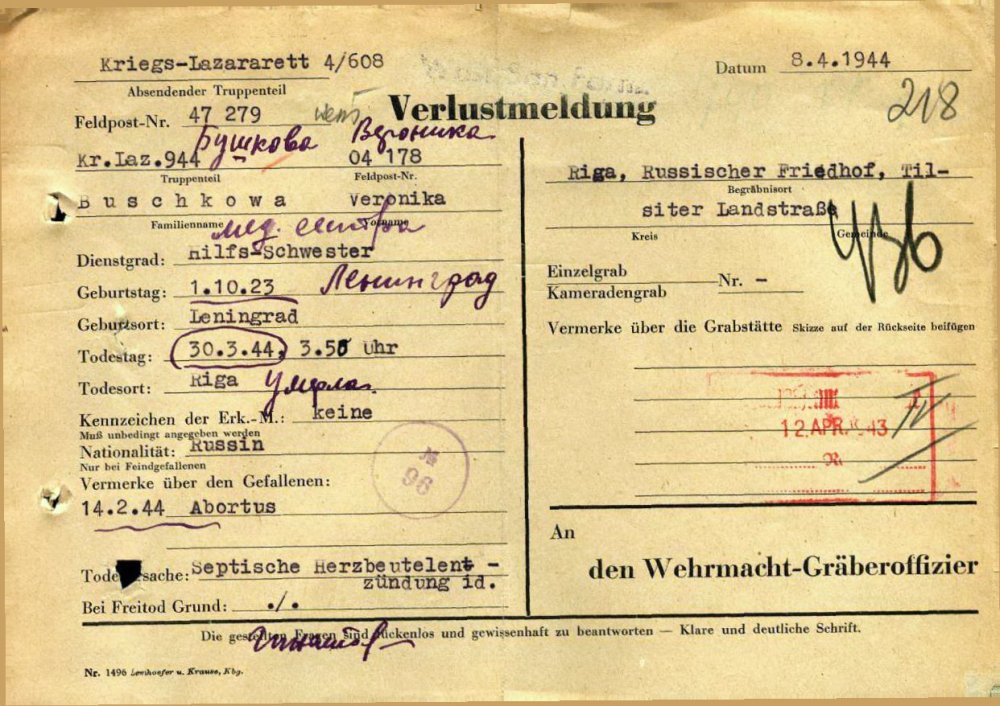 Kriegs-Lazararett 4/608
Absendender Truppenteil
Feldpost-Nr. 47 279
Datum 8.4.1944
218
Verlustmeldung
Бушкова Вероника
Kr.Laz.944 04 178
Truppenteil Feldpost-Nr.
Buschkowa Veronika
Familienname Vorname
мед. сестра
Dienstgrad: Hilfs-Schwester
Geburtstag: 1.10.23 Ленинград
Geburtsort: Leningrad
Todestag: 30.3.44. 3.50 Uhr
Todesort: Riga Умерла
Kennzeichen der Erk.-M.: keine
Muß unbedingt angegeben werden
Nationalität: Russin
Nur bei Feindgefallenen
Vermerke über den Gefallenen:
№
96
14.2.44 Abortus
Todesursache: Septische Herzbeutelent-
zündung id.
Bei Freitod Grund: ./.
Riga, Russischer Friedhof, Til-
Begräbnisort
siter Landstraße
Kreis Gemeinde
Einzelgrab
Kameradengrab Nr. -
Vermerke über die Grabstätte Skizze auf der Rückseite beifügen
IV
12.APR. 43
An
den Wehrmacht-Gräberoffizier
Die gestellten Fragen sind lückenlos und gewissenhaft zu beantworten — Klare und deutliche Schrift.
Nr. 1496 Lemhoefer u. Krause, Kbg.